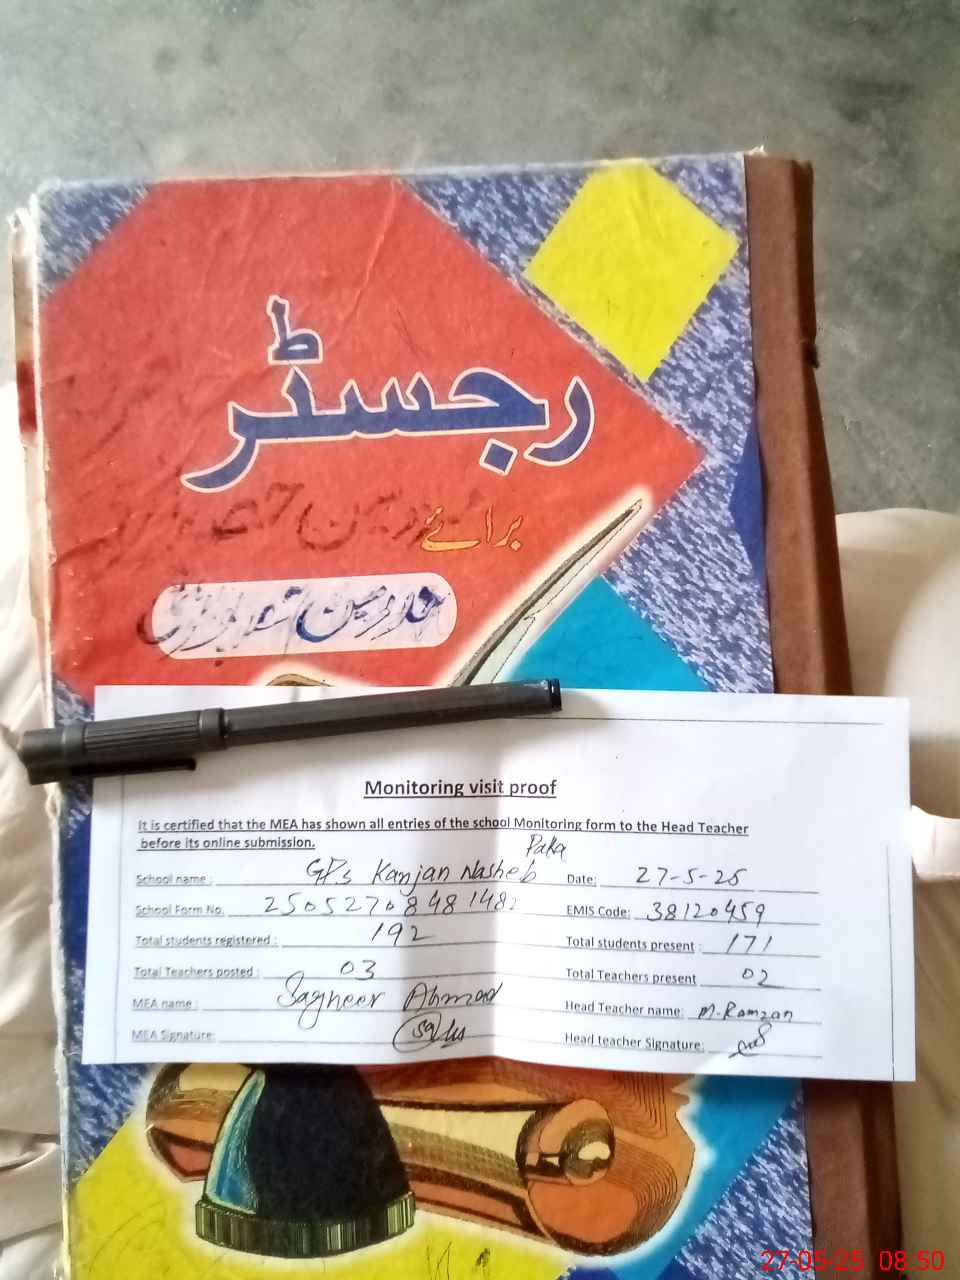 رجسٹر
برائے
Monitoring visit proof
It is certified that the MEA has shown all entries of the school Monitoring form to the Head Teacher
before its online submission.
Paka
School name : GPs Kanjan Nasheb Date: 27-5-25
School Form No. 25052708481482 EMIS Code: 38120459
Total students registered : 192 Total students present : 171
Total Teachers posted : 03 Total Teachers present 02
MEA name : Sagheer Ahmad Head Teacher name: M. Ramzan
MEA Signature: Head teacher Signature:
27-05-25 08:50